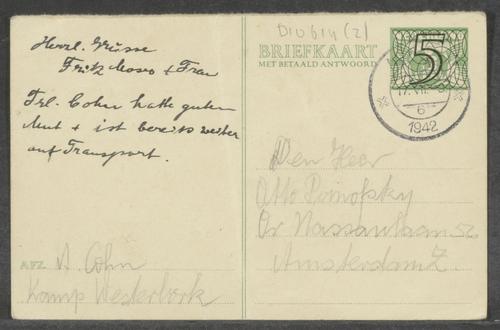 D10614 (2)
Herzl. Grüsse
Fritz + Frau
Frl. Cohn hatte guten
Mut + ist bereits weiter
auf Transport.
AFZ. A. Cohn
Kamp Westerbork
BRIEFKAART
MET BETAALD ANTWOORD
5
17. VII.
6
1942
Den Heer
Otto
Amsterdam Z.